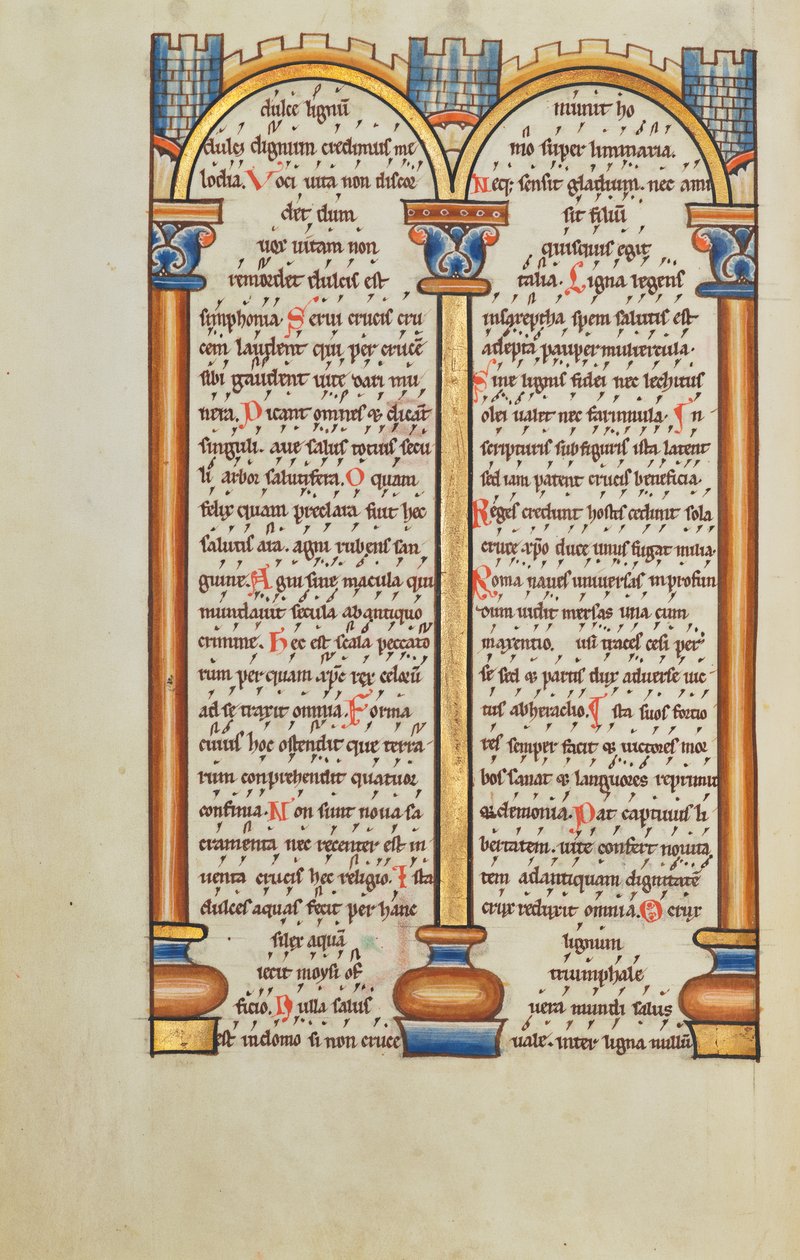 dulce lignū
dulci dignum credimus me
lodia. Voci uita non discor
det dum
uox uitam non
remordet dulcis est
simphonia. Serui crucis cru
cem laudent qui per crucē
sibi gaudent uite dari mu
nera. Dicant omnes & dicāt
singuli. aue salus totius secu
li arbor salutifera. O quam
felix quam preclara fuit hec
salutis ara. agni rubens san
guine. Agni sine macula qui
mundauit secula ab antiquo
crimine. Hec est scala peccato
rum per quam xp̄c rex celoꝝ̄
ad se traxit omnia. Forma
cuius hoc ostendit que terra
rum conprehendit quatuor
confinia. Non sunt noua sa
cramenta nec recenter est in
uenta crucis hec religio. Ista
dulces aquas fecit per hanc
silex aquā
iecit moysi of
ficio. Nulla salus
est in domo si non cruce
munit ho
mo super liminaria.
Neq; sensit gladium. nec ami
sit filiū
quisquis egit
talia. Ligna legens
insareptha spem salutis est
adepta pauper muliercula.
Sine lignis fidei nec lechitus
olei ualet nec farinnula. In
scripturis sub figuris ista latent
sed iam patent crucis beneficia.
Reges credunt hostes cedunt sola
cruce xp̄o duce unus fugat milia.
Roma naues uniuersas in profun
dum uidit mersas una cum
maxentio. usi traces cesi per
se sed & partis dux aduerse uic
tus ab heraclio. Ista suos fortio
res semper facit & uictores mor
bos sanat & languores reprimit
& demonia. Dat captiuis li
bertatem. uite confert nouita
tem ad antiquam dignitatē
crux reduxit omnia. O crux
lignum
triumphale
uera mundi salus
uale. inter ligna nullū